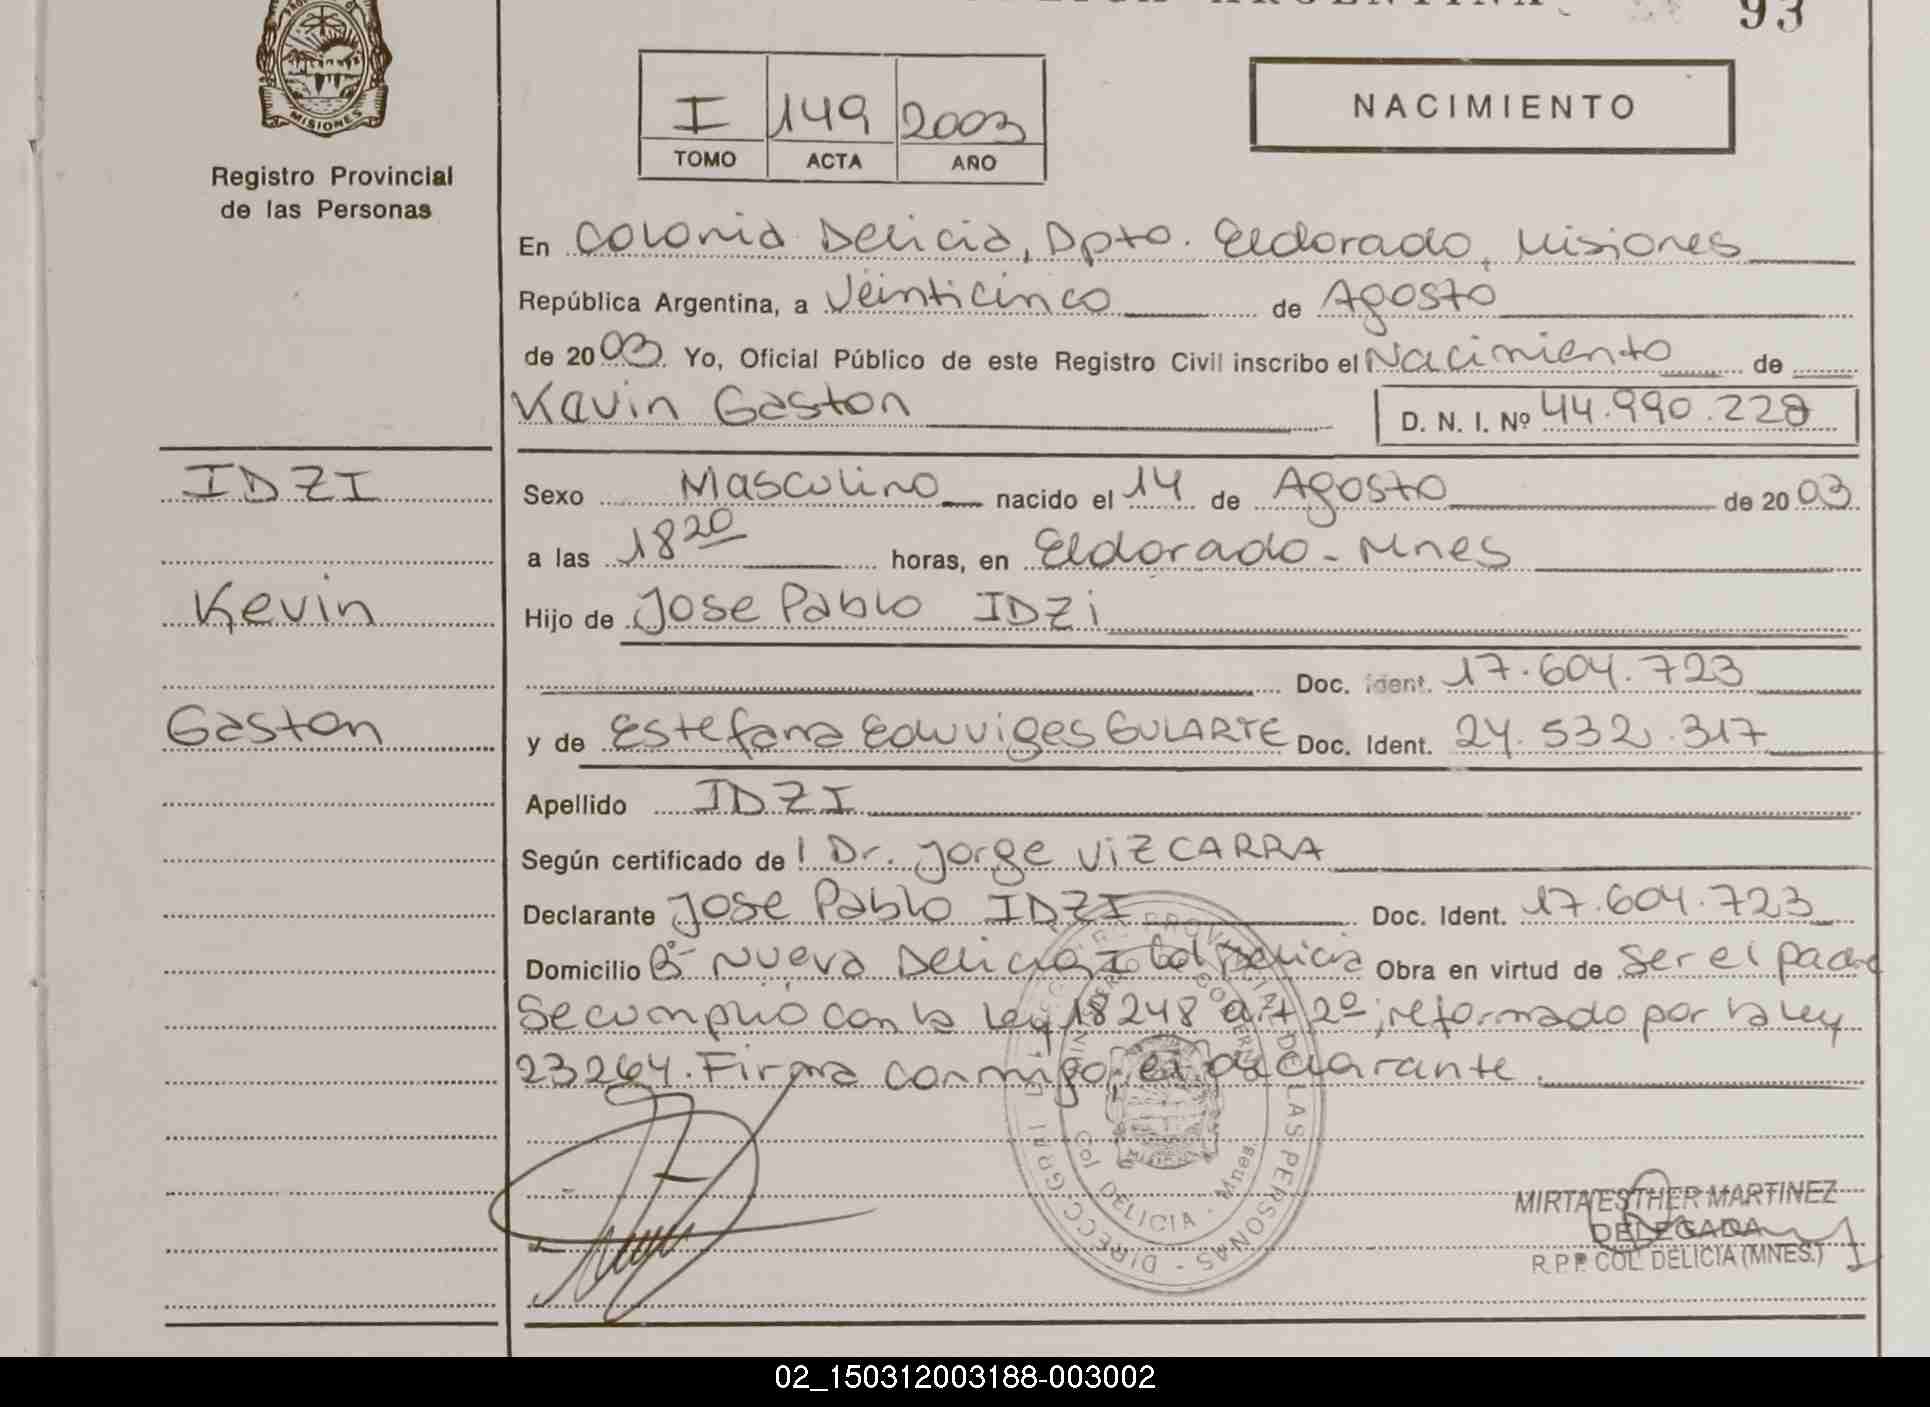 93
MISIONES
Registro Provincial
de las Personas
I 149 2003
TOMO ACTA AÑO
NACIMIENTO
En Colonia Delicia, Dpto. Eldorado, Misiones
República Argentina, a Veinticinco de Agosto
de 2003 Yo, Oficial Público de este Registro Civil inscribo el Nacimiento de
Kevin Gaston D. N. I. Nº 44.990.228
IDZI
Kevin
Gaston
Sexo Masculino nacido el 14 de Agosto de 2003
a las 18 20 horas, en Eldorado - Mnes
Hijo de Jose Pablo IDZi
Doc. Ident. 17.604.723
y de Estefana Eduviges GULARTE Doc. Ident. 24.532.317
Apellido IDZI
Según certificado de l Dr. Jorge VIZCARRA
Declarante Jose Pablo IDZI Doc. Ident. 17.604.723
Domicilio Bº Nueva Delicia Col Delicia Obra en virtud de Ser el padre
Se cumplio con la Ley 18248 art 2º, reformado por la ley
23264. Firma conmigo, el declarante.
Col DELICIA - Mnes.
MIRTA ESTHER MARTINEZ
DELEGADA
R.P.P. COL. DELICIA (MNES.)
02_150312003188-003002